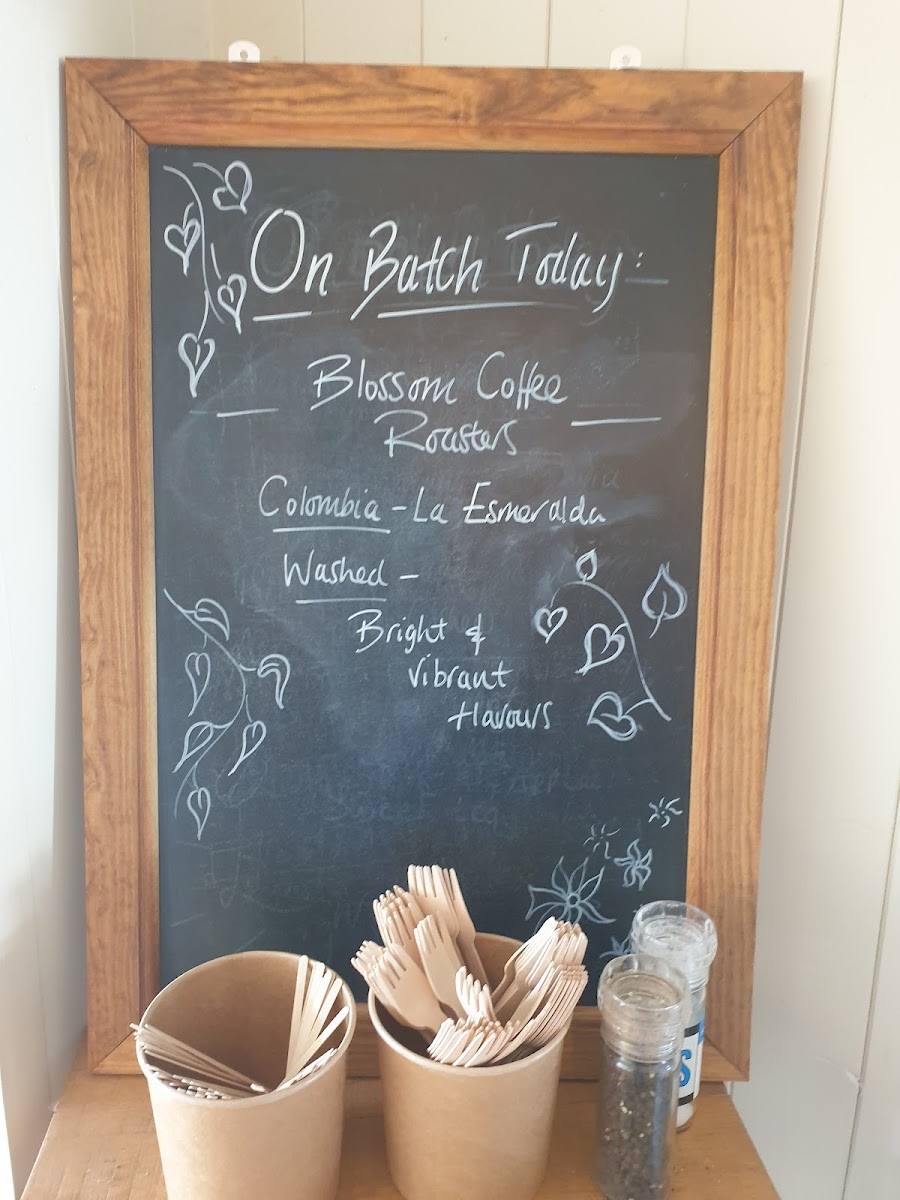 On Batch Today:
Blossom Coffee
Roasters
Colombia - La Esmeralda
Washed -
Bright &
vibrant
flavours
S